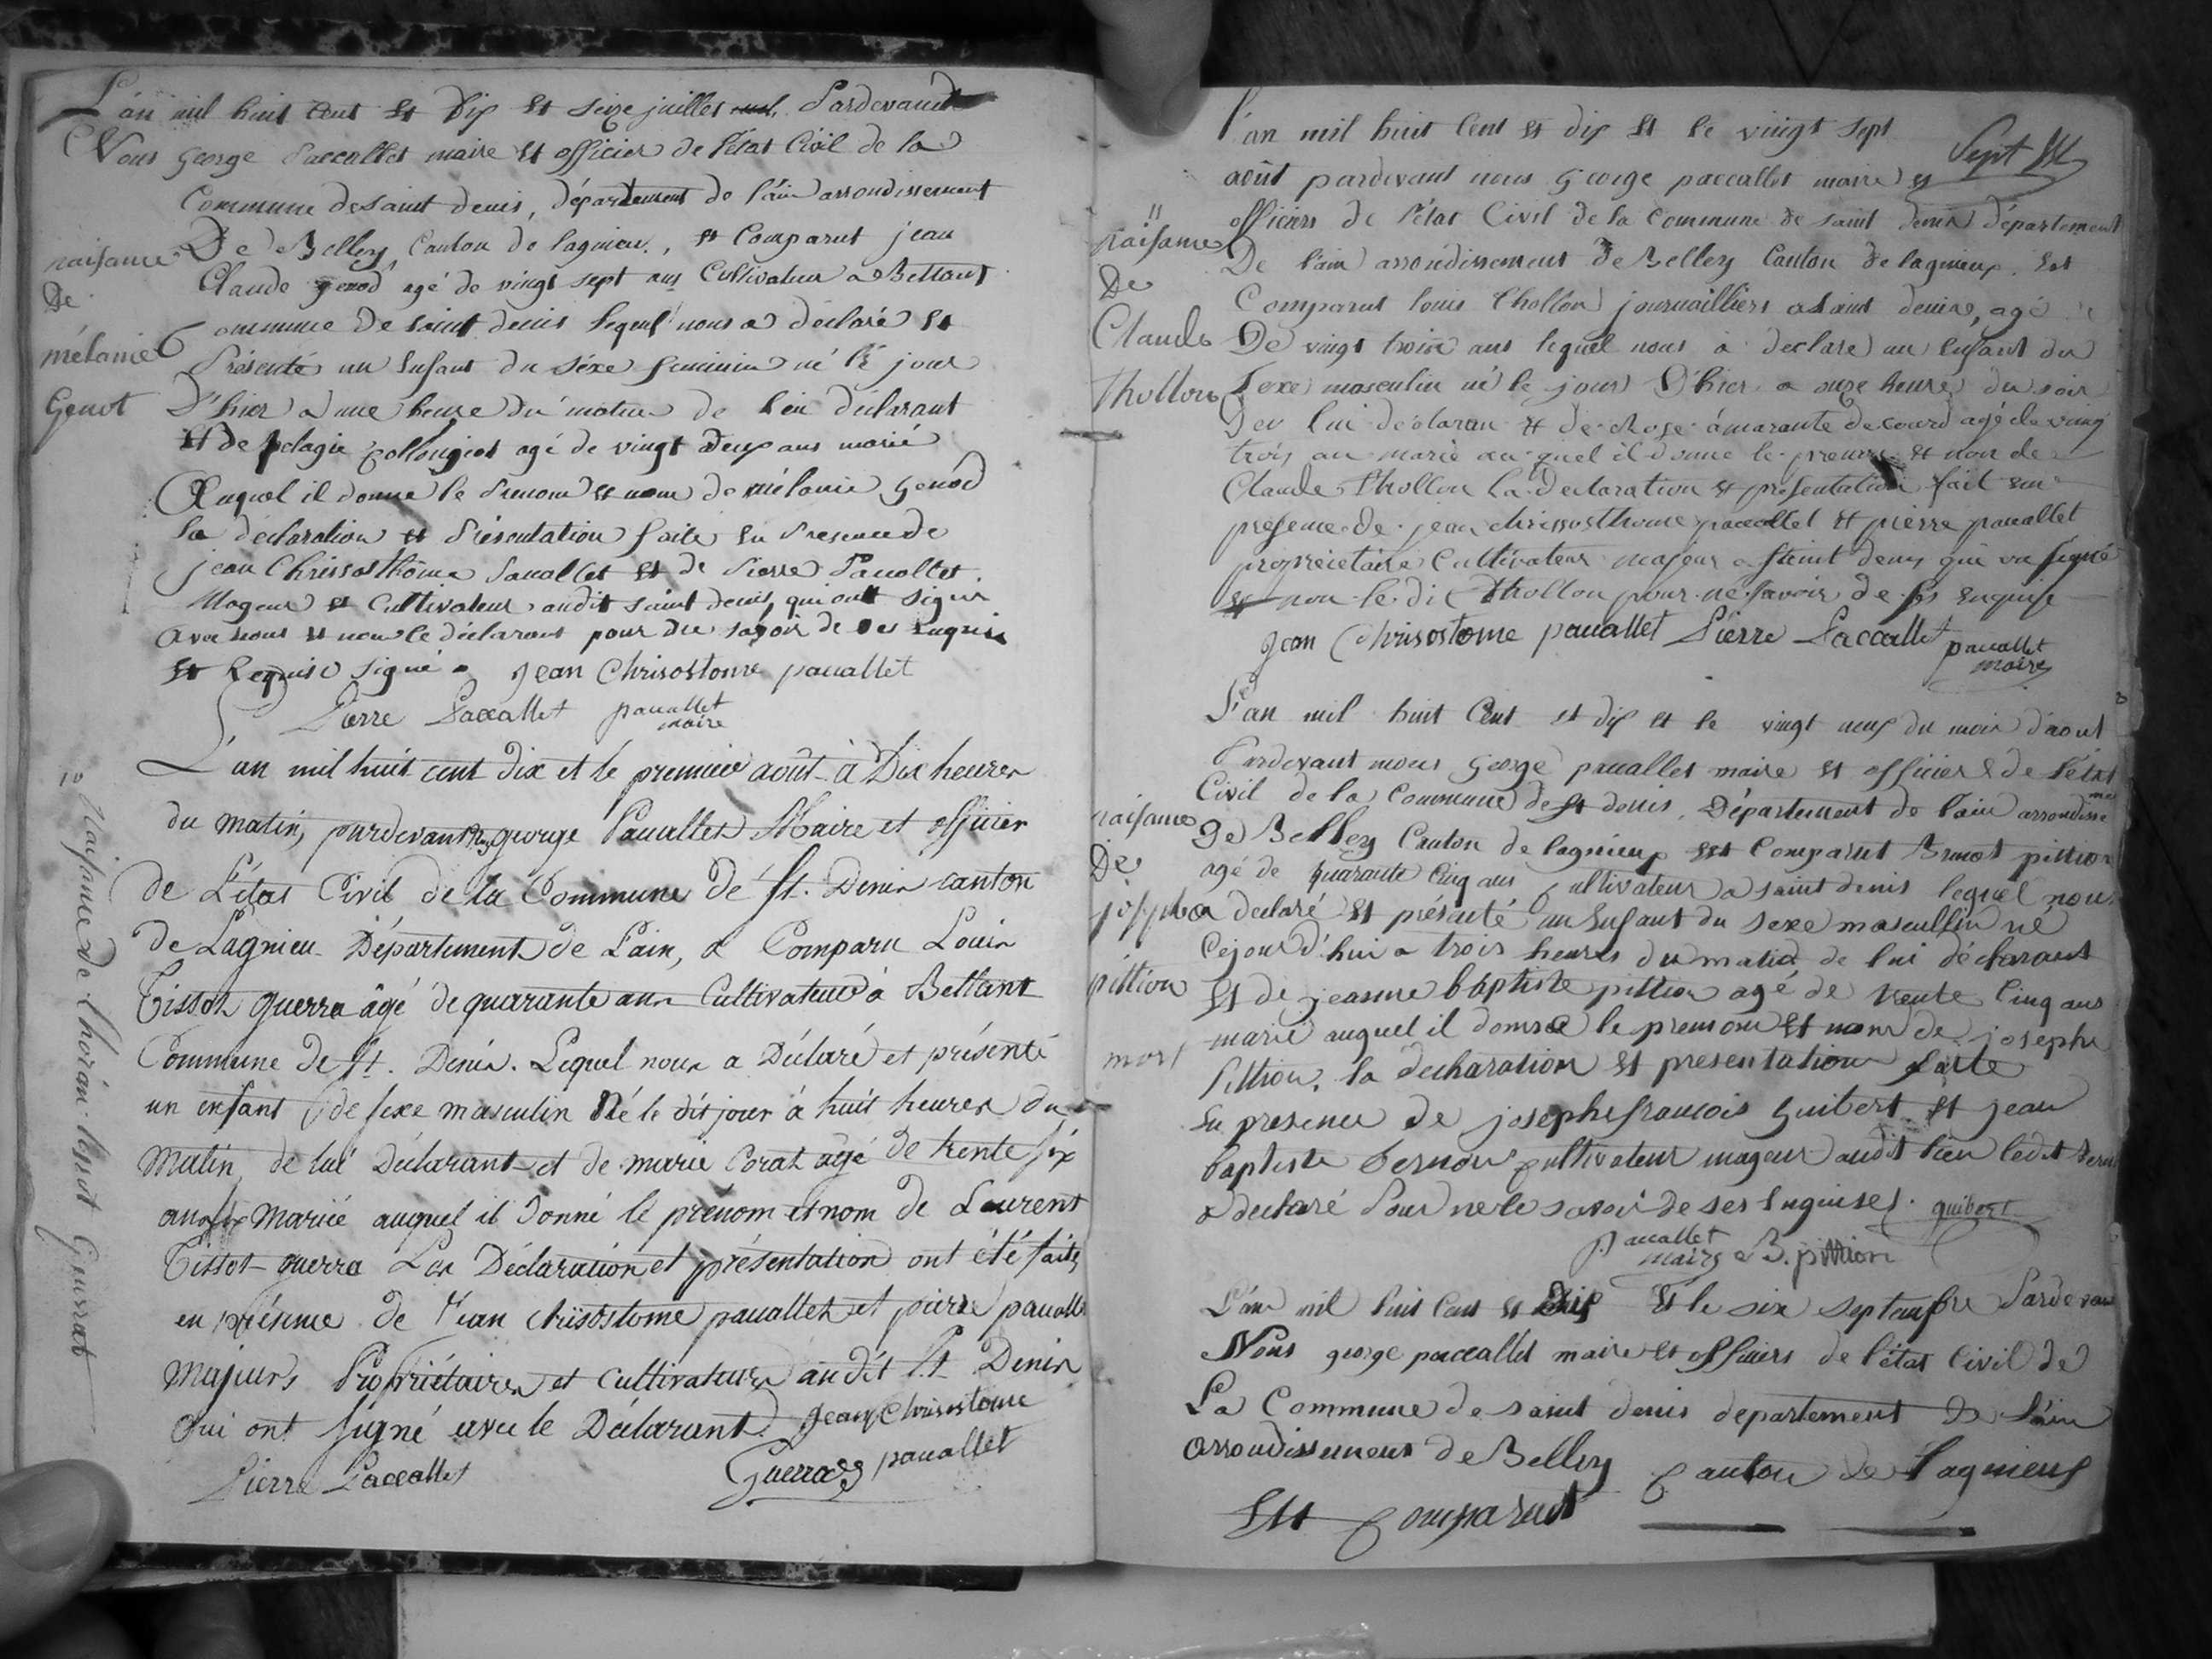 L'an mil huit cent et dix et seize juillet Pardevant
Nous george Paccallet maire et officier de l'état Civil de la
Commune de saint denis, département de l'ain arrondissement
De Belley, Canton de lagnieu, et Comparut jean
Claude genod agé de vingt sept ans Cultivateur a Bettant
Commune de saint denis lequel nous a déclaré et
Présenté un enfant du séxe feminin né le jour
D'hier a une heure du matin de lui déclarant
et de pelagie agé de vingt deux ans marié
Auquel il donne le Prenom et nom de mélanie genod
la déclaration et Présentation faite en Presence de
jean Chrissosthôme Pacallet et de Pierre Pacollet
Mageur et Cultivateur audit saint denis, qui ont signé
avec nous et non le déclarant pour de savoir de ses enquis
et Requise signé jean Chrisostome pacallet
Pierre Paccallet pacallet
maire
naisance
De
mélanie
Genot
L'an mil huit cent dix et le premier août à Dix heures
du matin, pardevant nous george Pacallet Maire et officier
de L'état Civil de la Commune de St. Denis canton
de Lagnieu Département de L'ain, a Comparu Louis
Tissot guerra âgé de quarante ans Cultivateur à Bettant
Commune de St. Denis. Lequel nous a Déclaré et présenté
un enfant de sexe masculin Né le dit jour à huit heures du
Matin, de lui Déclarant et de marie Corat agé de trente six
ans marié auquel il donné le prénom et nom de Laurent
Tissot guerra Les Déclaration et présentation ont été faites
en présence de Jean chrisostome pacallet et pierre pacalle
Majeurs Propriétaires et cultivateurs audit St. Denis
Qui ont signé avec le Déclarant Jean Chrisostome
Pierre Paccallet Guerra pacallet
10
Naisance de Tissot Guerrat
l'an mil huit Cent et dix et le vingt sept
Sept
août pardevant nous George paccallet maire et
officiers de l'état Civil de la Commune de saint denis département
De l'ain arrondissement de Belley Canton de lagnieux. Est
Comparut louis thollon journailliers a saint denis, agé
De vingt trois ans lequel nous a declaré un enfant du
sexe masculin né le jour D'hier a onze heure du soir
De lui declaran et de Rose amarante decourd agé de ving
trois an marie au quel il donne le prenon et non de
Claude thollon la declaration et presentation fait en
presence de jean chrissosthome paccallet et pierre pacallet
proprietaire Cultivateur majeur a saint denis que on signé
et non le dit thollon pour ne savoir de se enquise
Jean Chrisostome pacallet Pierre Paccallet pacallet
maire
11
naisance
De
Claude
thollon
L'an mil huit Cent et dix et le vingt neuf du mois d'aout
Pardevant nous george pacallet maire et officier de l'état
Civil de la Commune de st denis, Département de l'ain arrondisse
De Belley Canton de lagnieux est Comparut Benoit pittion
agé de quarante cinq ans Cultivateur a saint denis lequel nous
a declaré et présenté un Enfant du sexe masculin né
Cejourd'hui a trois heures du matin de lui déclarant
et de jeanne baptiste pittion agé de trente Cinq ans
marié auquel il donne le prenom et nom de josephe
Pittion. la declaration et presentation faite
En presence de josephe francois Guibert et jean
baptiste bernou Cultivateur mageur audit lieu ledit
a declaré Pour ne le savoir de ses Enquises. guibert
pacallet
maire B. pittion
naisance
De
josephe
pittion
mort
L'an mil huit Cent et dix et le six septembre Pardevan
Nous george paccallet maire et officiers de l'état Civil de
La Commune de saint denis departement de l'ain
Arrondissement de Belley Canton de lagnieux
Est Comparut